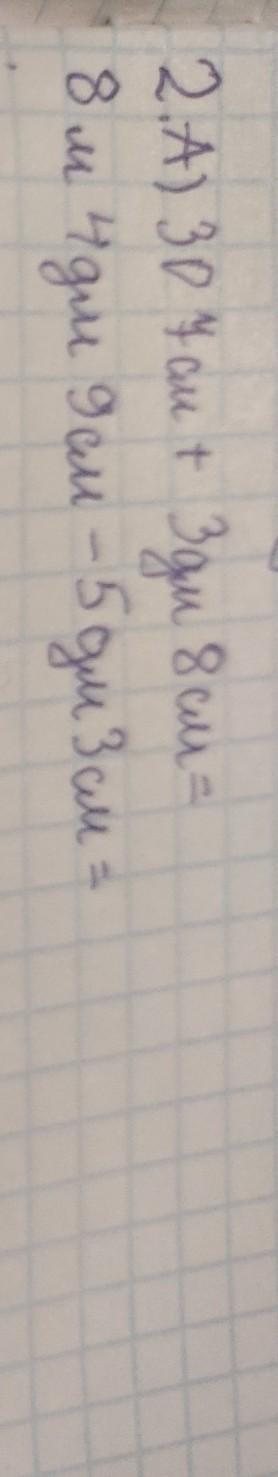 2.А) 30 7см + 3дм 8см =
8 м 4дм 9см - 5дм 3см =